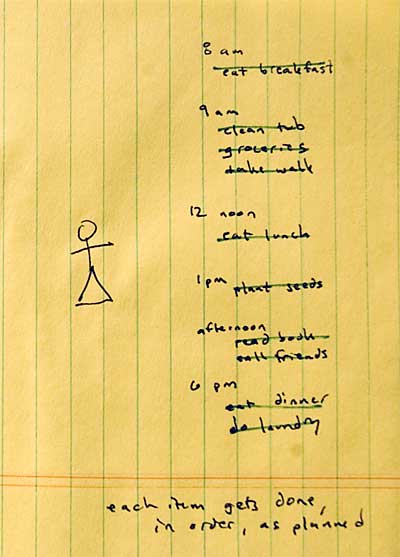 8 am
eat breakfast
9 am
clean tub
groceries
take walk
12 noon
eat lunch
1 pm plant seeds
afternoon
read book
call friends
6 pm
eat dinner
do laundry
each item gets done,
in order, as planned